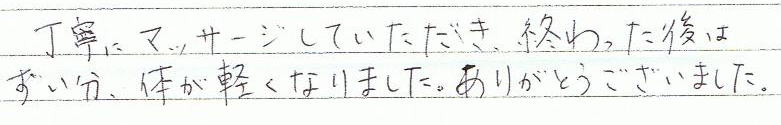 丁寧に マッサージしていただき、終わった後は
ずい分、体が軽くなりました。ありがとうございました。